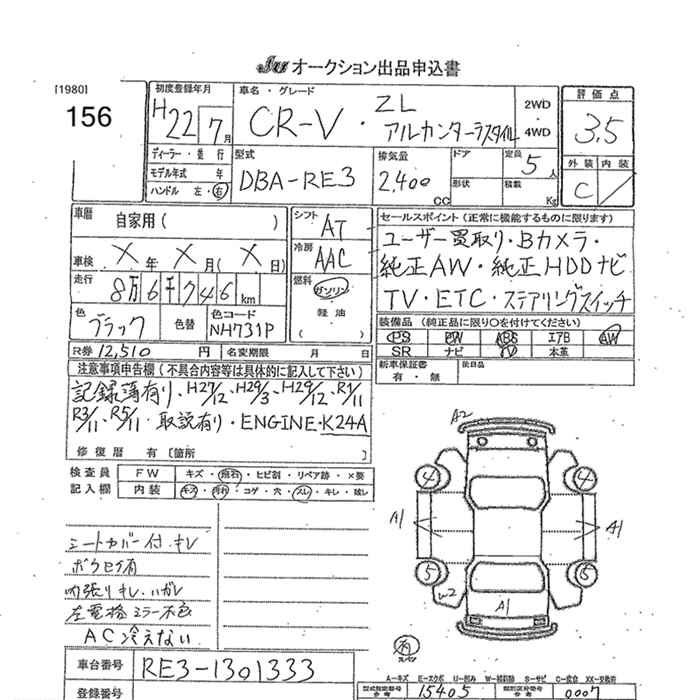 JU オークション出品申込書
[1980]
156
初度登録年月
H22 7月
車名・グレード
CR-V・ZL
アルカンターラスタイル
2WD
4WD
評価点
3.5
外装 内装
C
ディーラー・並行
モデル年式 年
ハンドル 左・右
型式
DBA-RE3
排気量
2,400
CC
ドア
形状
定員
5人
積載
Kg
車歴
自家用( )
車検 X年 X月(X日)
走行 8万6千746km
色
ブラック
色替
色コード
NH731P
シフト
AT
冷房
AAC
燃料
ガソリン
軽油
( )
セールスポイント(正常に機能するものに限ります)
ユーザー買取り・Bカメラ・
純正AW・純正HDDナビ
TV・ETC・ステアリングスイッチ
装備品(純正品に限り○を付けてください)
PS PW ABS エアB AW
SR ナビ TV 本革
新車保証書
有・無
後日品
R券 12,510円 名変期限 月 日
注意事項申告欄(不具合内容等は具体的に記入して下さい)
記録簿有り、H27/12、H29/3、H29/12、R1/11
R3/11、R5/11・取説有り・ENGINE・K24A
修復歴 有〔箇所
検査員
記入欄
FW キズ・飛石・ヒビ割・リペア跡・×要
内装 キズ・汚れ・コゲ・穴・スレ・キレ・破レ
シートカバー付.キレ
ボクセ有
内張りキレ.ハガレ
左電格ミラー不良
AC冷えない
A2
4 4
A1 A1
5 5
W2
A1
スパン
車台番号 RE3-1301333
登録番号
A-キズ E-エクボ U-凹み W-補修跡 S-サビ C-腐食 XX-交換済
型式指定番号 15405 類別区分番号 0007
参考 参考